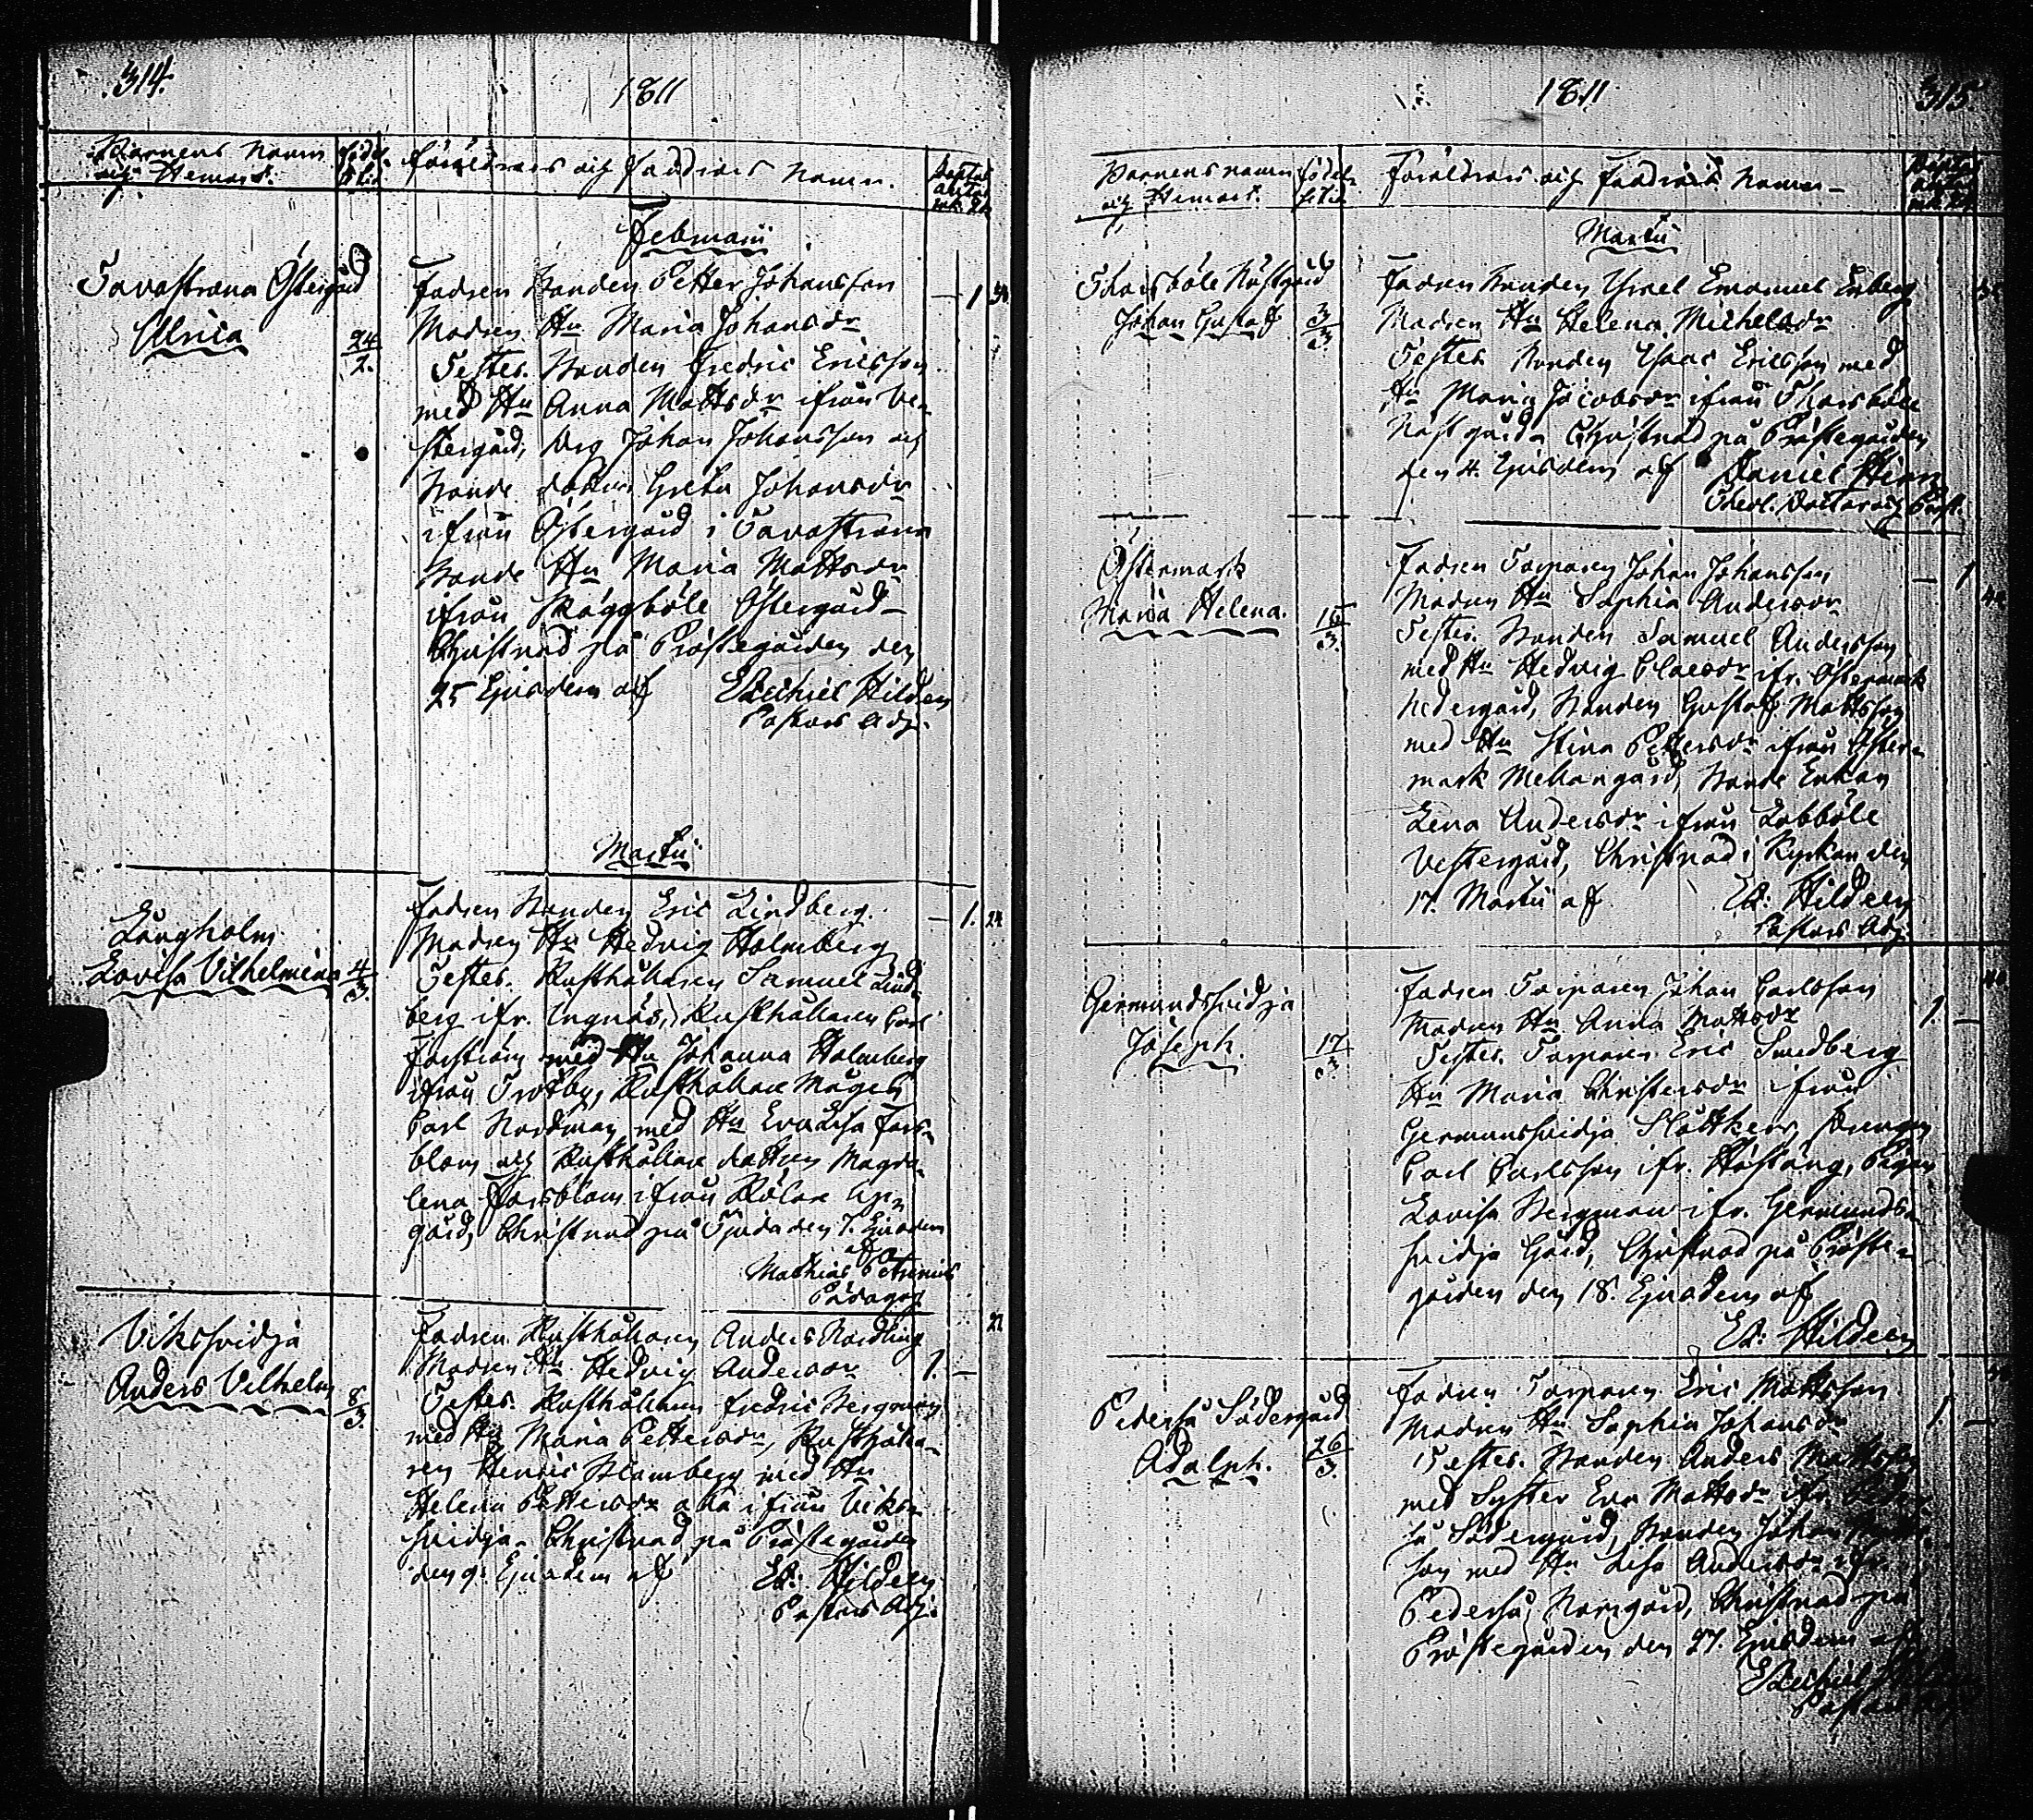 314.
1811
Barnens namn
och Hemort.
födelse
tid
föräldrars och faddrars namn.
Februarii
Tavastrana Östergård
Ulrica
24
2.
Fadren Bonden Petter Johansson
Modren Hu Maria Johansdr
Testes. Bonden Fredric Ericsson
med Hu Anna Mattsdr ifrån Ve-
stergård, Drg Johan Johansson och
Bonde dottren Greta Johansdr
ifrån Östergård i Tavastrana
Bonde Hu Maria Mattsdr
ifrån Skäggböle Östergård
Christnad på Prästegården den
25 Ejusdem af Ezechiel Hildeen
Pastors Adj.
1 34
Martii
Långholm
Lovisa Vilhelmina
4
3.
Fadren Bonden Eric Lindberg.
Modren Hu Hedvig Holmberg
Testes. Rusthållaren Samuel Lind-
berg ifr. Engnäs, Rusthållaren Carl
Forström med Hu Johanna Holmberg
ifrån Trotby, Rusthållare Mågen
Carl Nordman med Hu Eva Lisa Fors-
blom och Rusthållare dottren Magda-
lena Forsblom ifrån Kålax
gård, Christnad på Tjuda den 7. Ejusdem
af
Mathias Petrenius
Pädagog
1. 24
Viksvidja
Anders Vilhelm
8
3.
Fadren Rusthållaren Anders Nordling
Modren Hu Hedvig Andersdr
Testes. Rusthållaren Fredric Bergman
med Hu Maria Pettersdr, Rusthålla-
ren Henric Blomberg med Hu
Helena Pettersdr alla ifrån Viks-
vidja. Christnad på Prästegården
den 9. Ejusdem af Ez: Hildeen
Pastors Adj.
1. 27
1811
315
Barnens namn
och Hemort.
födelse
tid
Föräldrars och Faddrars namn
Martii
Johan Gustaf
3
3.
Fadren Bonden Israel Emanuel Enberg
Modren Hu Helena Michelsdr
Testes Bonden Isaac Ericsson med
Hu Maria Jacobsdr ifrån
Christnad på Prästegården
den 4. Ejusdem af Daniel Hirn
Theol. Doctor och Past.
Östermark
Maria Helena.
16
3.
Fadren Torparen Johan Johansson
Modren Hu Sophia Andersdr
Testes. Bonden Samuel Andersson
med Hu Hedvig Claesdr ifr. Östermark
Nedergård, Bonden Gustaf Mattsson
med Hu Stina Pettersdr ifrån Öster-
mark Mellangård, Bonde Enkan
Lena Andersdr ifrån Labböle
Vestergård, Christnad i Kyrkan den
17. Martii af Ez: Hildeen
Pastors Adj.
1
Germundsvidja
Joseph.
17
3.
Fadren Torparen Johan Carlsson
Modren Hu Anna Mattsdr
Testes. Torparen Eric Smedberg
Hu Maria Christersdr ifrån
Germunsvidja Slättkerr, Drengen
Carl Carlsson ifr. Håslång, Pigan
Lovisa Bergman ifr. Germunds-
vidja Gård, Christnad på Präste-
gården den 18. Ejusdem af
Ez: Hildeen
1.
Pederså Södergård
Adolph.
26
3.
Fadren Torparen Eric Mattsson
Modren Hu Sophia Johansdr
Testes. Bonden Anders Mattsson
med Syster Eva Mattsdr ifr. Peder-
så Södergård, Bonden Johan
son med Hu Lisa Andersdr ifr.
Pederså Norrgård, Christnad på
Prästegården den 27. Ejusdem af
Ezechiel Hildeen
Pastors Adj.
1.